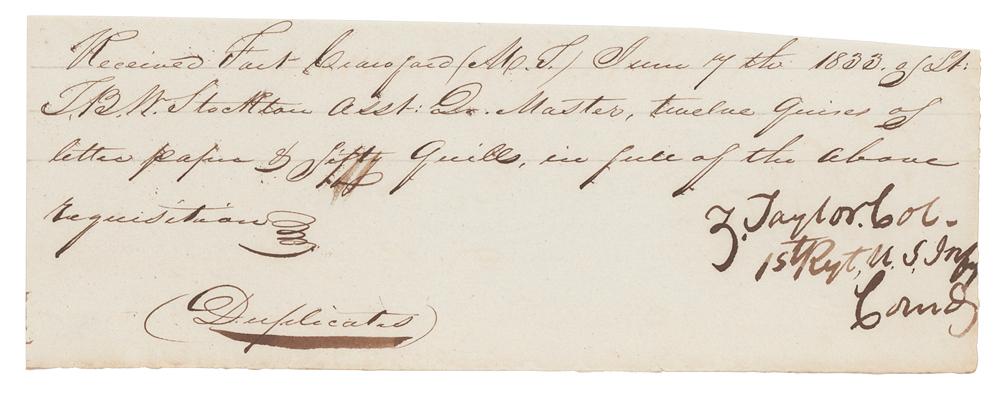 Received Fort Crawford (M.T.) June 7 th 1833. of Lt:
T.B.W. Stockton Asst: Qr. Master, twelve Quires of
letter paper & fifty Quills, in full of the above
requisition
Z. Taylor. Col-
1st Regt, U.S. Infy
Comdg
(Duplicates)